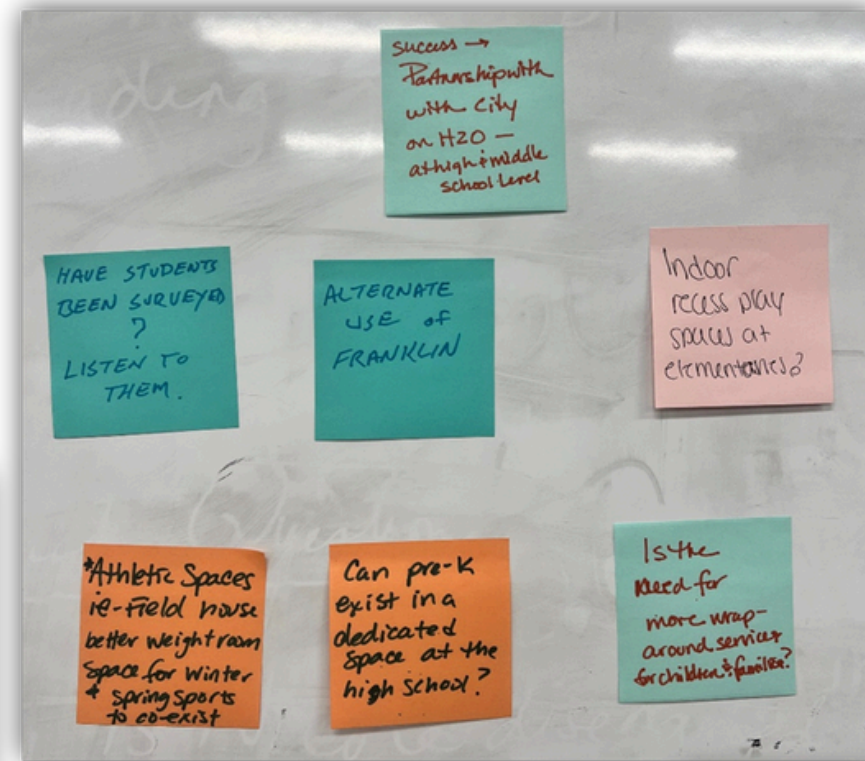 success →
Partnership with
with City
on H2O —
at high & middle
school level
HAVE STUDENTS
BEEN SURVEYED
?
LISTEN TO
THEM.
ALTERNATE
USE of
FRANKLIN
Indoor
recess play
spaces at
elementaries?
*Athletic Spaces
ie-Field house
better weight room
space for winter
& spring sports
to co-exist
Can pre-K
exist in a
dedicated
space at the
high school?
Is the
need for
more wrap-
around services
for children & families?